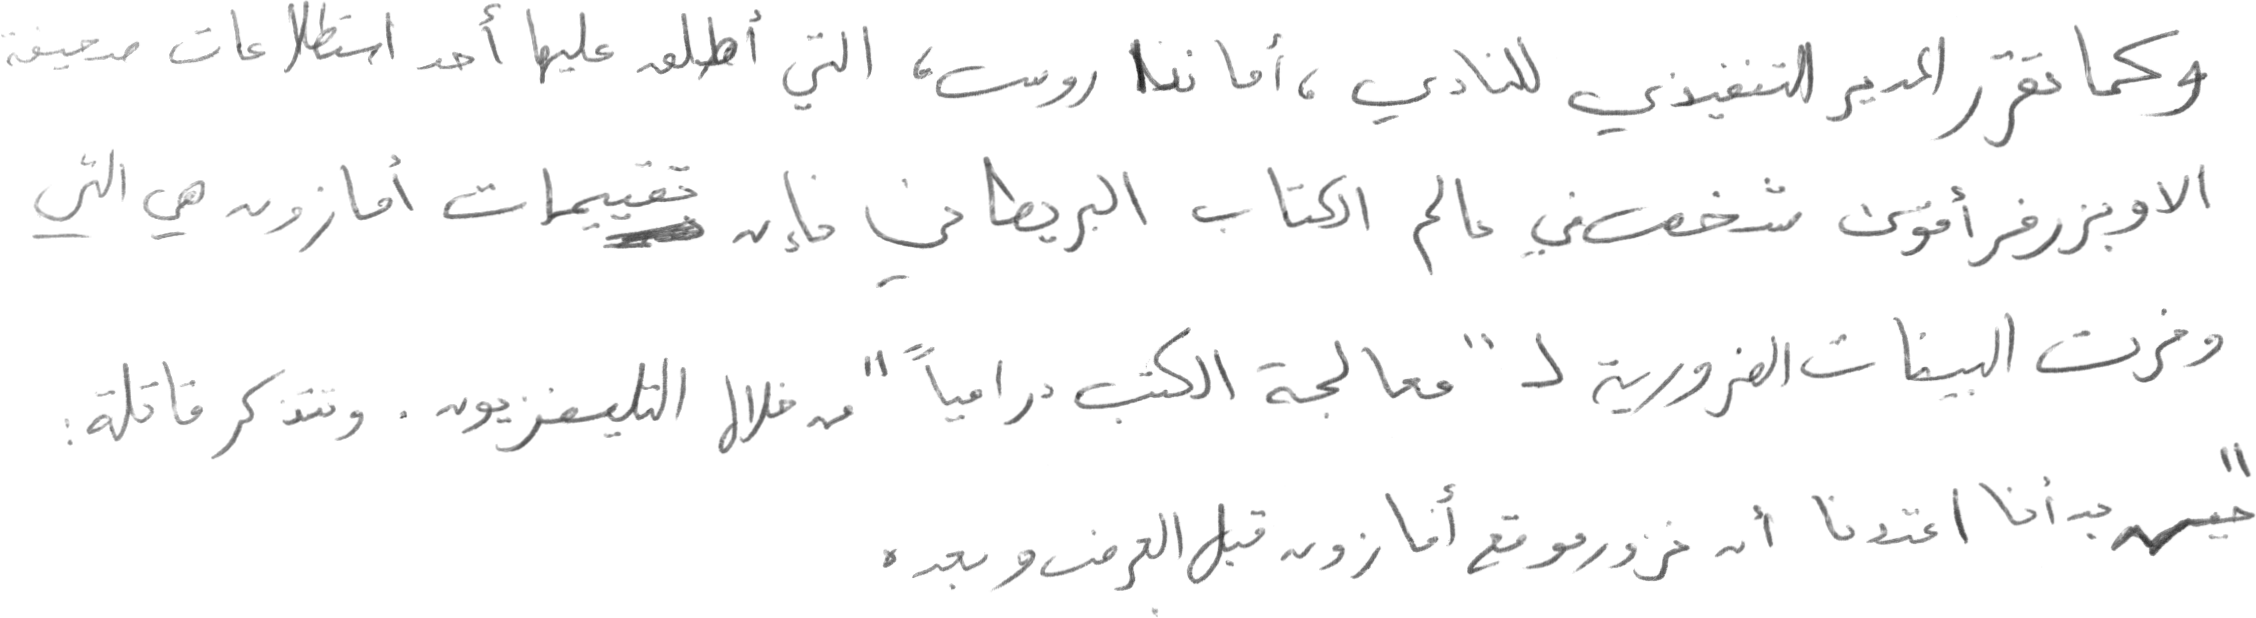 وكما تقرّر المدير التنفيذي للنادي ، أماندا روس ، التي أطلق عليها أحد استطلاعات صحيفة
الاوبزرفر أقوى شخصية في عالم الكتاب البريطاني فإن تقييمات أمازون هي التي
وفرت البيانات الضرورية لـ "معالجة الكتب درامياً" من خلال التليفزيون . وتتذكر قائلة :
"حين بدأنا اعتدنا أن نزور موقع أمازون قبل العرض وبعده